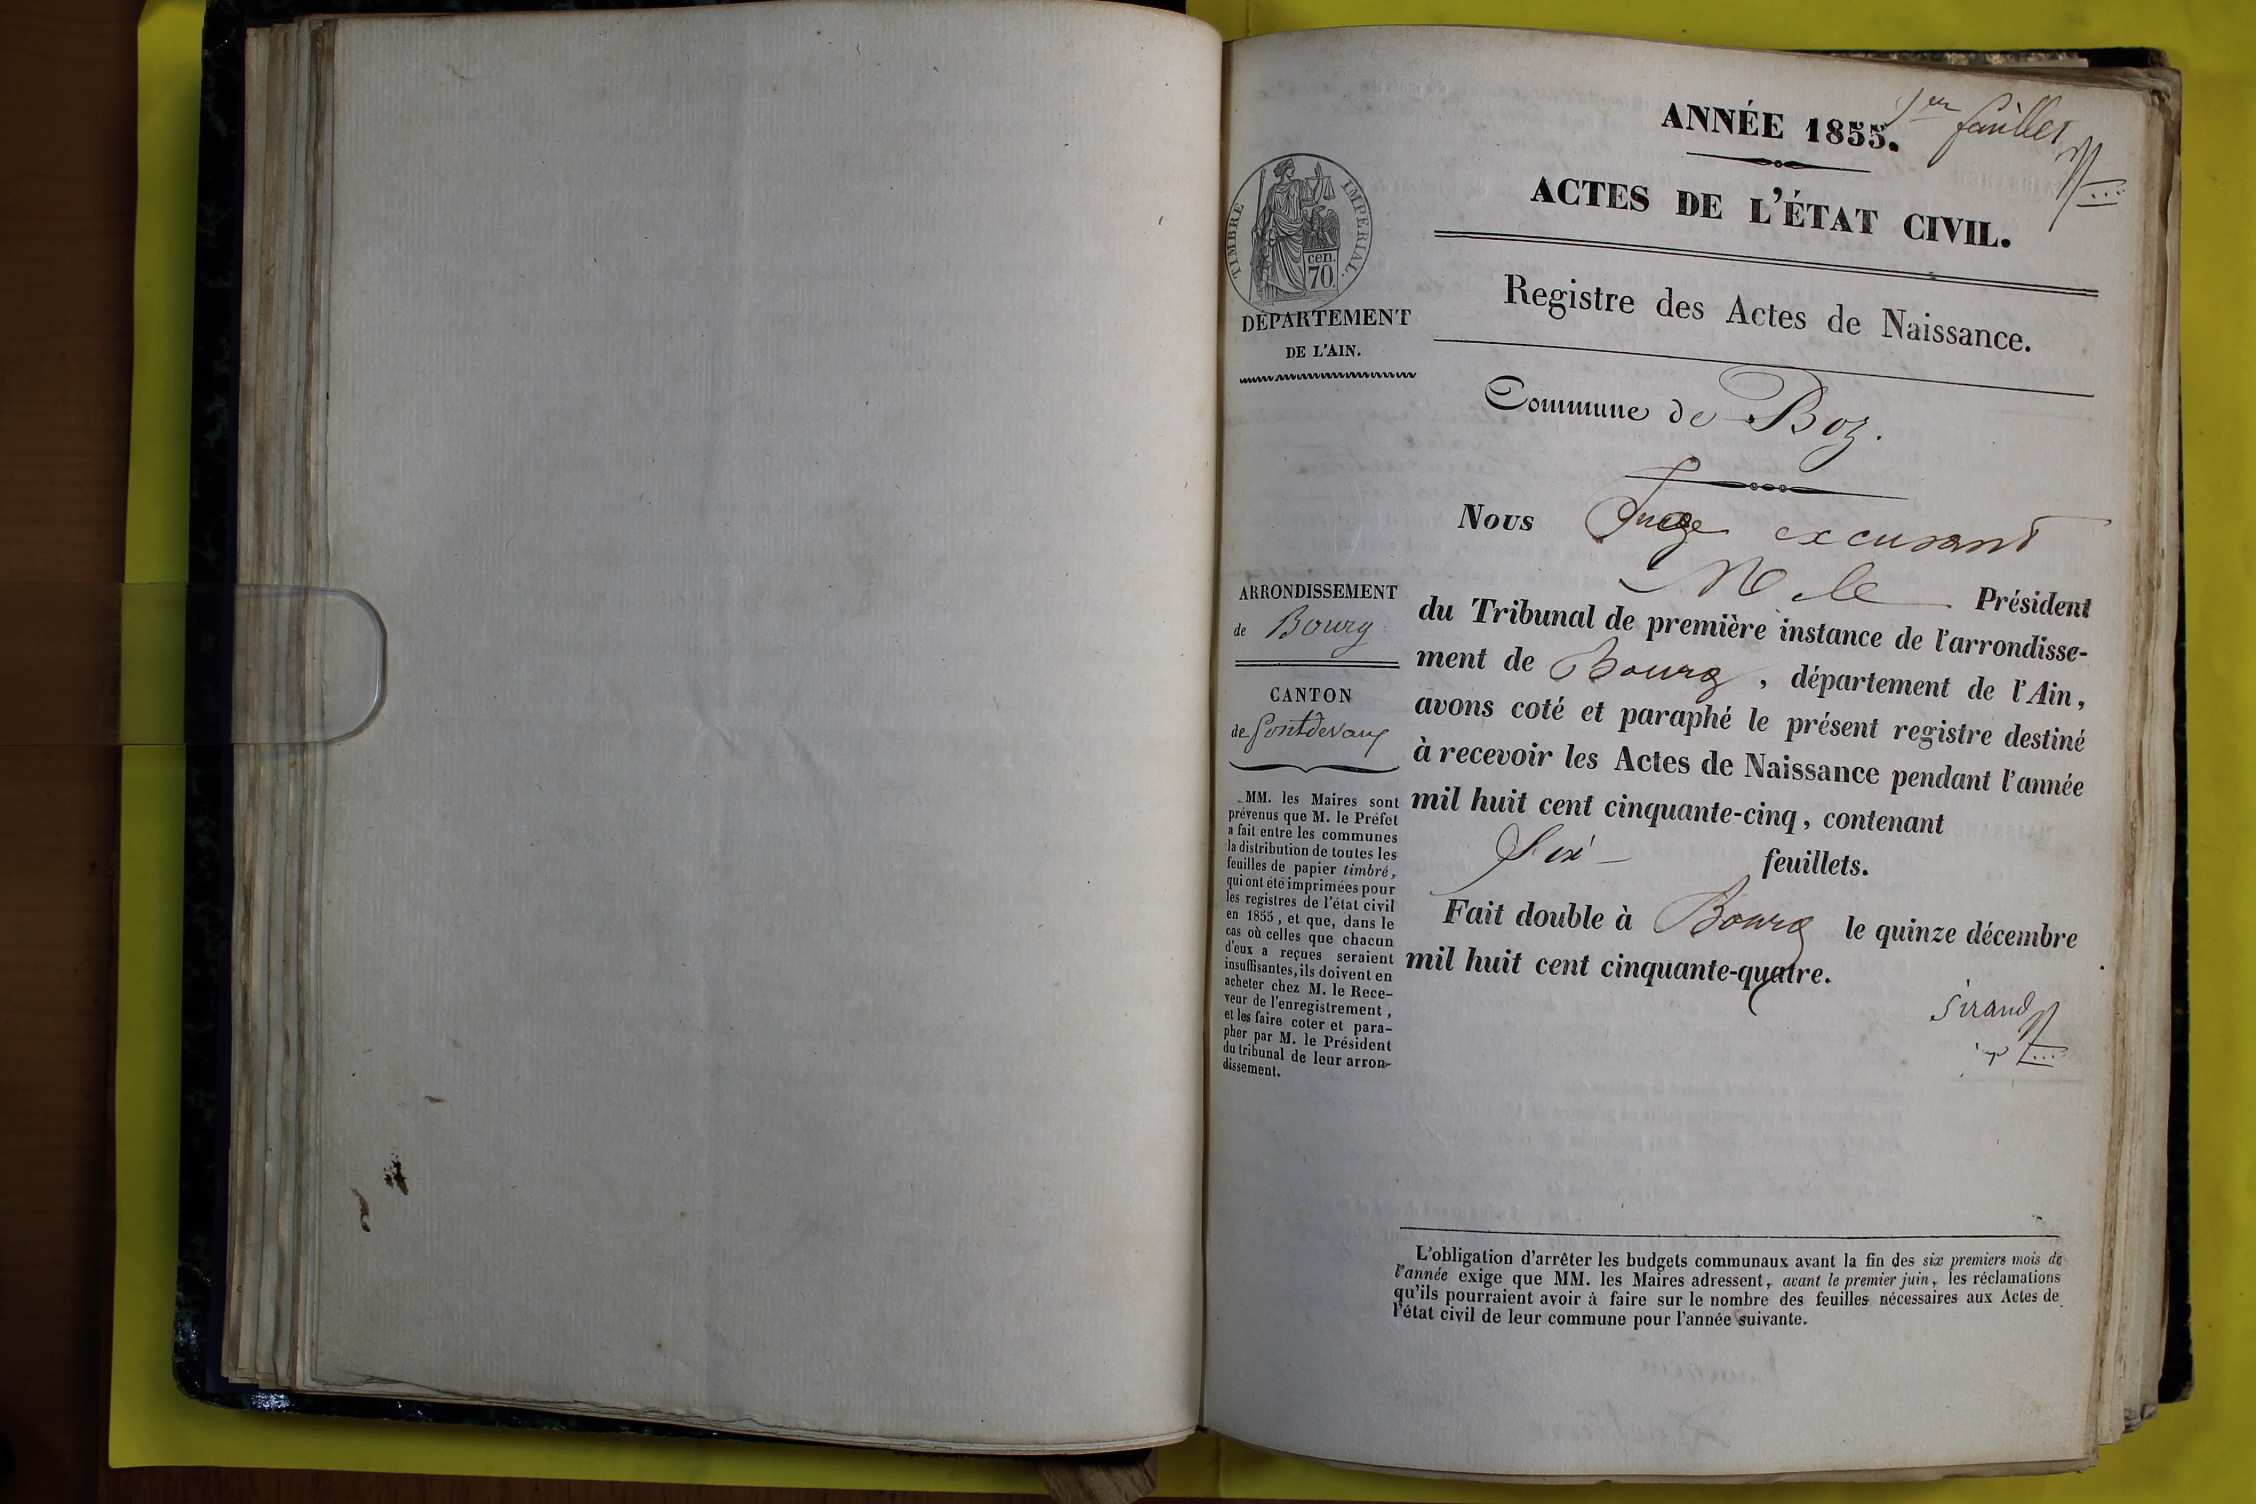 1er feuillet
ANNÉE 1855.
ACTES DE L'ÉTAT CIVIL.
Registre des Actes de Naissance.
TIMBRE IMPÉRIAL.
cen.
70.
DÉPARTEMENT
DE L'AIN.
Commune de Boz.
ARRONDISSEMENT
de Bourg
CANTON
de Pontdevaux
MM. les Maires sont
prévenus que M. le Préfet
a fait entre les communes
la distribution de toutes les
feuilles de papier timbré,
qui ont été imprimées pour
les registres de l'état civil
en 1855, et que, dans le
cas où celles que chacun
d'eux a reçues seraient
insuffisantes, ils doivent en
acheter chez M. le Rece-
veur de l'enregistrement,
et les faire coter et para-
pher par M. le Président
du tribunal de leur arron-
dissement.
Nous Juge excusant
M le Président
du Tribunal de première instance de l'arrondisse-
ment de Bourg, département de l'Ain,
avons coté et paraphé le présent registre destiné
à recevoir les Actes de Naissance pendant l'année
mil huit cent cinquante-cinq, contenant
Six feuillets.
Fait double à Bourg le quinze décembre
mil huit cent cinquante-quatre.
Sirand
L'obligation d'arrêter les budgets communaux avant la fin des six premiers mois de
l'année exige que MM. les Maires adressent, avant le premier juin, les réclamations
qu'ils pourraient avoir à faire sur le nombre des feuilles nécessaires aux Actes de
l'état civil de leur commune pour l'année suivante.